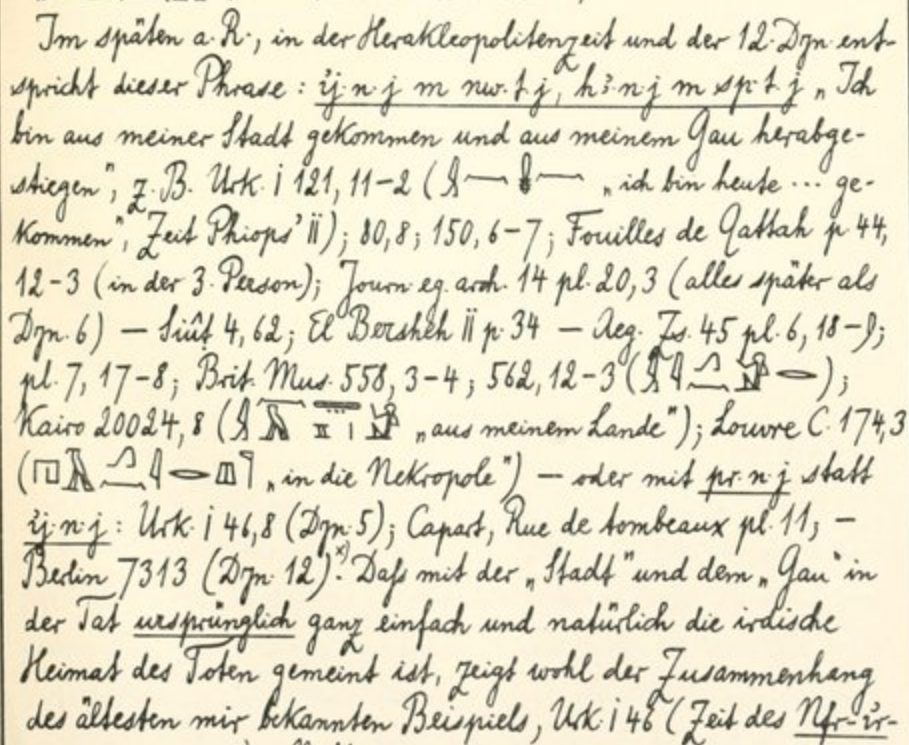 Im späten a. R., in der Herakleopolitenzeit und der 12. Dyn. ent-
spricht dieser Phrase: ꞽj·n·j m nw·t·j, hꜣ·n·j m spꜣ·t·j „Ich
bin aus meiner Stadt gekommen und aus meinem Gau herabge-
stiegen“, z. B. Urk. I 121, 11-2 ( „ich bin heute ... ge-
kommen“, Zeit Phiops' II); 80,8; 150, 6-7; Fouilles de Qattah p 44,
12-3 (in der 3. Person); Journ. eg. arch. 14 pl. 20, 3 (alles später als
Dyn. 6) — Siût 4, 62; El Bersheh II p. 34 — Aeg. Zs. 45 pl. 6, 18-9;
pl. 7, 17-8; Brit. Mus. 558, 3-4; 562, 12-3 ( );
Kairo 20024, 8 ( „aus meinem Lande“); Louvre C. 174,3
( „in die Nekropole“) — oder mit pr·n·j statt
ꞽj·n·j: Urk. I 46,8 (Dyn. 5); Capart, Rue de tombeaux pl. 11; —
Berlin 7313 (Dyn. 12)ˣ⁾. Daſs mit der „Stadt“ und dem „Gau“ in
der Tat ursprünglich ganz einfach und natürlich die irdische
Heimat des Toten gemeint ist, zeigt wohl der Zusammenhang
des ältesten mir bekannten Beispiels, Urk. I 46 (Zeit des Nfr-ꞽr-